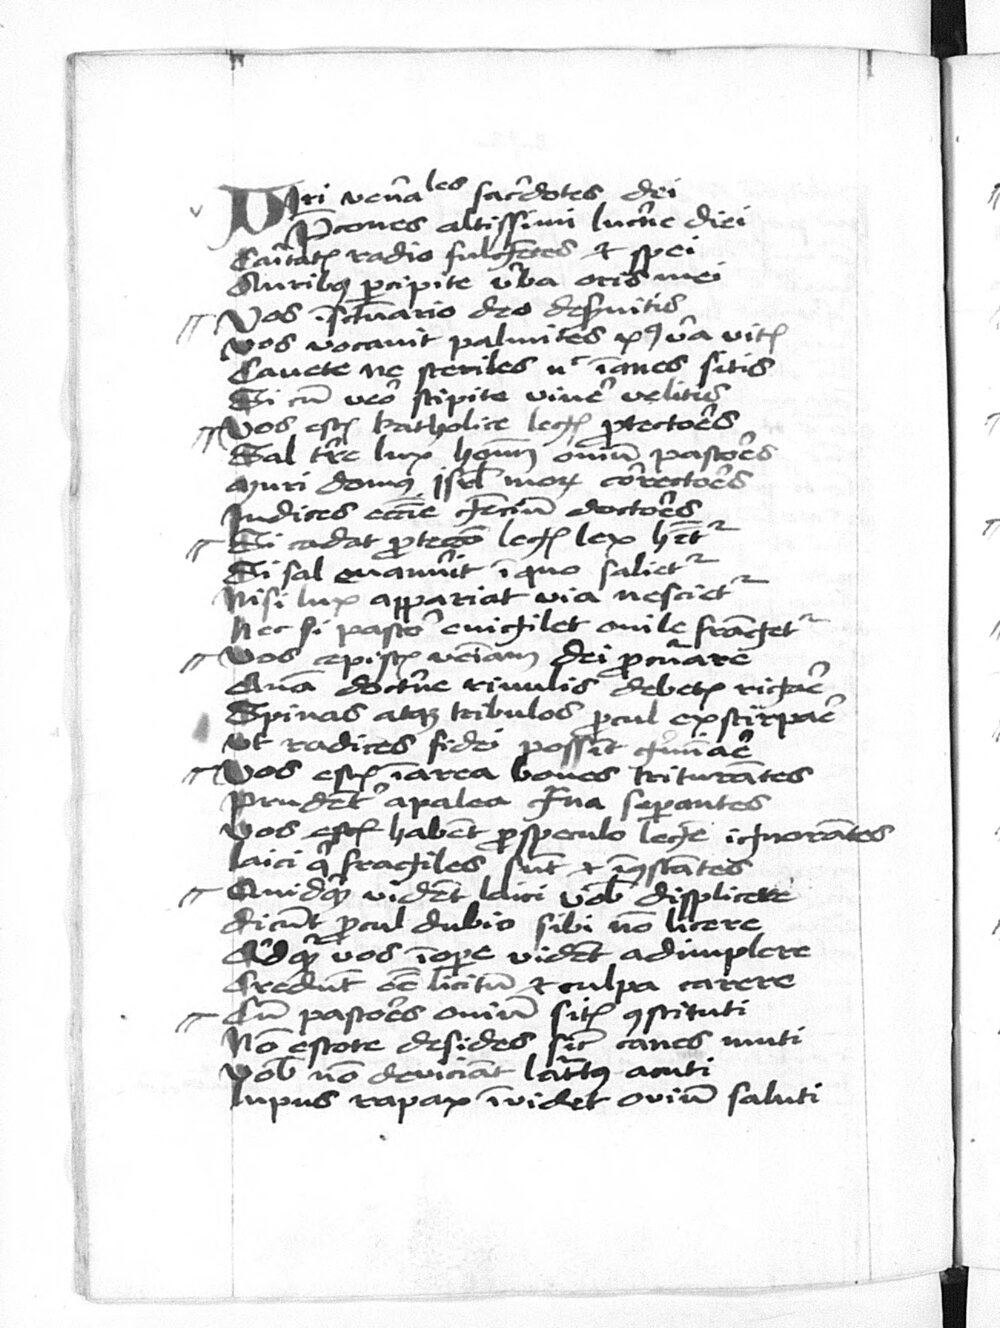 Viri venerales sacerdotes dei
Pcones altissimi lucerne diei
Caritatis radio fulgentes et spei
Auribus percipite verba oris mei
Vos in sanctuario deo deservitis
Vos vocavit palmites xpus vera vitis
Cavete ne steriles nec inanes sitis
Si cum vero stipite vivere velitis
Vos estis katholice legis protectores
Sal terre lux hominum ovium pastores
Muri domus israhel morum correctores
Judices ecclesie gencium doctores
Si cadat proteccio legis lex
Si sal evanuerit in quo salietur
Nisi lux appariat via nescietur
Nec si pastor evigilet ovile frangetur
Vos cepistis dei procurare
Quam doctrine rivulis debetis rigare
Spinas atque tribulos procul exstirpare
Ut radices fidei possint germinare
Vos estis in area boves triturantes
Prudenter a palea grana separantes
Vos habent pro speculo legem ignorantes
Laici qui fragiles sunt et inconstantes
Quidquid vident laici vobis displicere
Dicunt procul dubio sibi non licere
Quidquid vos in opere vident adimplere
Credunt esse licitum et culpa carere
Cum pastores ovium sitis constituti
Non estote desides sicut canes muti
Vobis non deviciant latratus acuti
Lupus rapax invidet ovium saluti